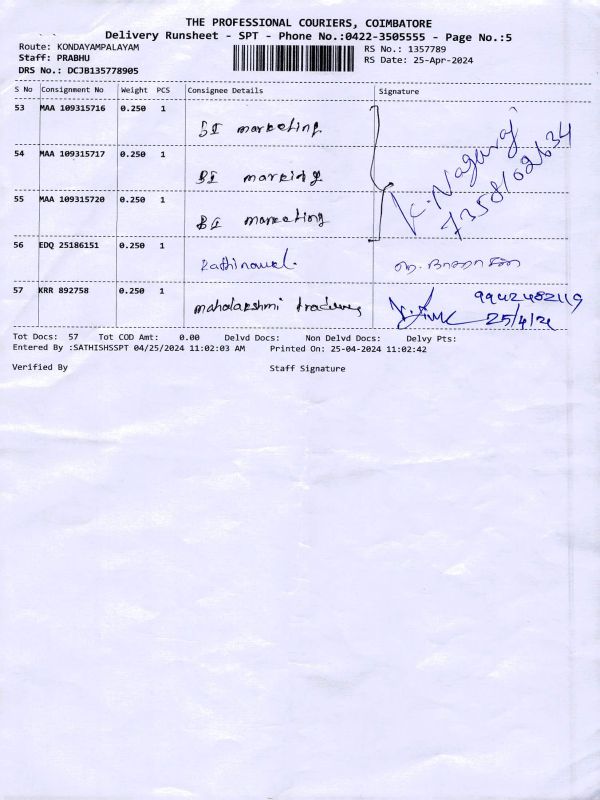 THE PROFESSIONAL COURIERS, COIMBATORE
Delivery Runsheet - SPT - Phone No.:0422-3505555 - Page No.:5
Route: KONDAYAMPALAYAM
RS No.: 1357789
Staff: PRABHU
RS Date: 25-Apr-2024
DRS No.: DCJB135778905
S No Consignment No Weight PCS Consignee Details Signature
53 MAA 109315716 0.250 1
marketing
54 MAA 109315717 0.250 1
K. Nagaraj
55 MAA 109315720 0.250 1
marketing
56 EDQ 25186151 0.250 1
57 KRR 892758 0.250 1
mahalakshmi
9942482119
25/4/24
Tot Docs: 57 Tot COD Amt: 0.00 Delvd Docs: Non Delvd Docs: Delvy Pts:
Entered By :SATHISHSSPT 04/25/2024 11:02:03 AM Printed On: 25-04-2024 11:02:42
Verified By Staff Signature